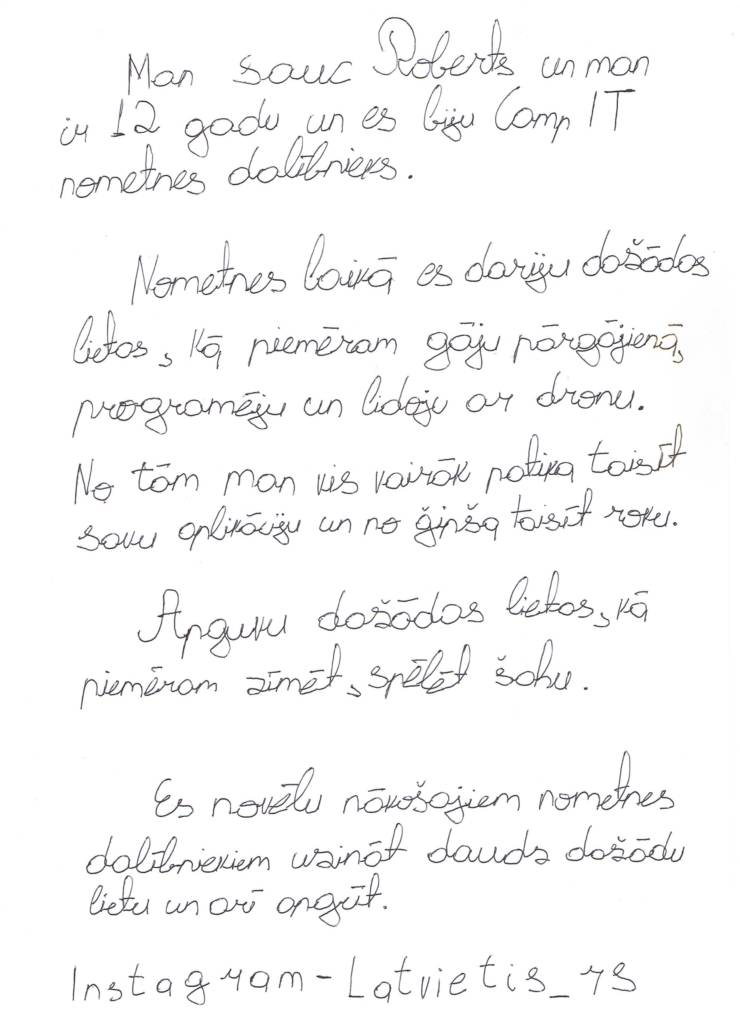 Man sauc Roberts un man
ir 12 gadu un es biju Camp IT
nometnes dalībnieks.
Nometnes laikā es dariju došādas
lietas, kā piemēram gāju pārgājienā,
programēju un lidoju ar dronu.
No tām man vis vairāk patika taisīt
savu aplikāciju un no ģipša taisīt roku.
Apguvu došādas lietas, kā
piemēram zīmēt, spēlēt šahu.
Es novēlu nākošajiem nometnes
dalībniekiem uzināt daudz došādu
lietu un arī apgūt.
Instagram - Latvietis_rs